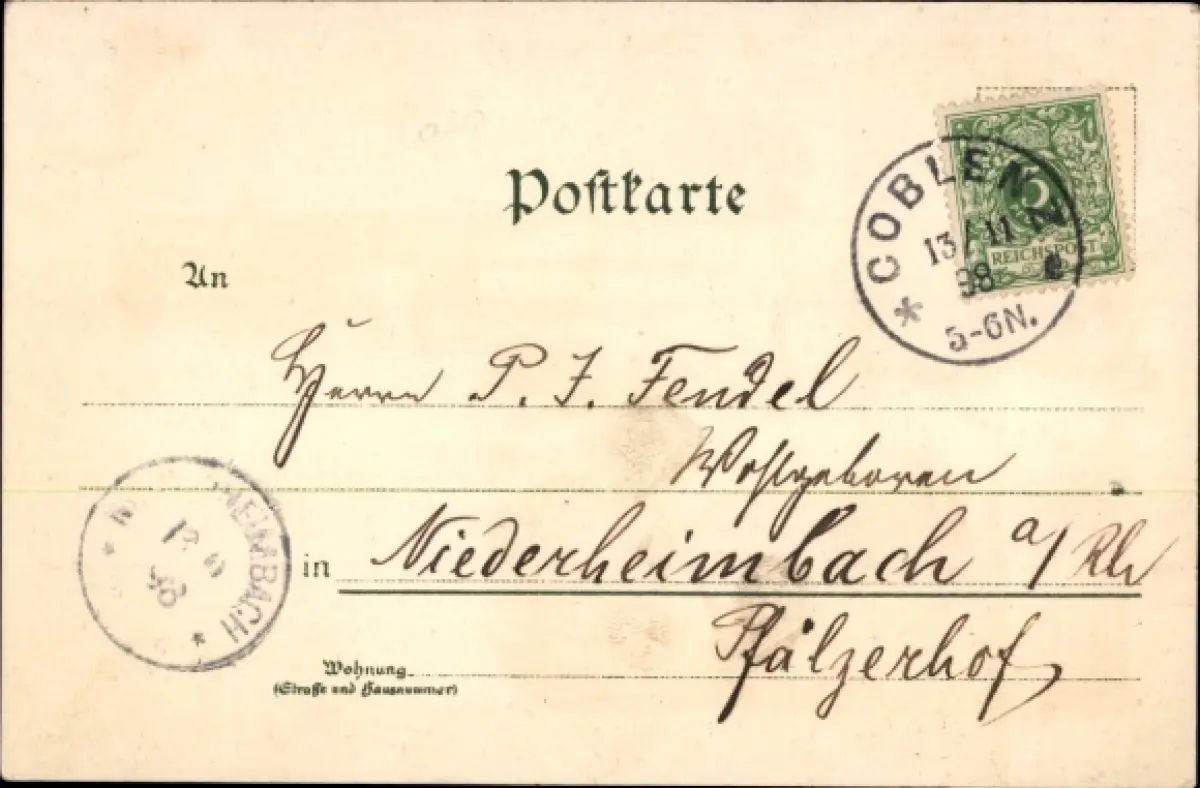 Postkarte
COBLENZ
13/11
98
5-6N.
5
REICHSPOST
An
Herrn P. J. Fendel
Wohlgeboren
in Niederheimbach a/Rh
Pfälzerhof
HEIMBACH
98
Wohnung
(Straße und Hausnummer)